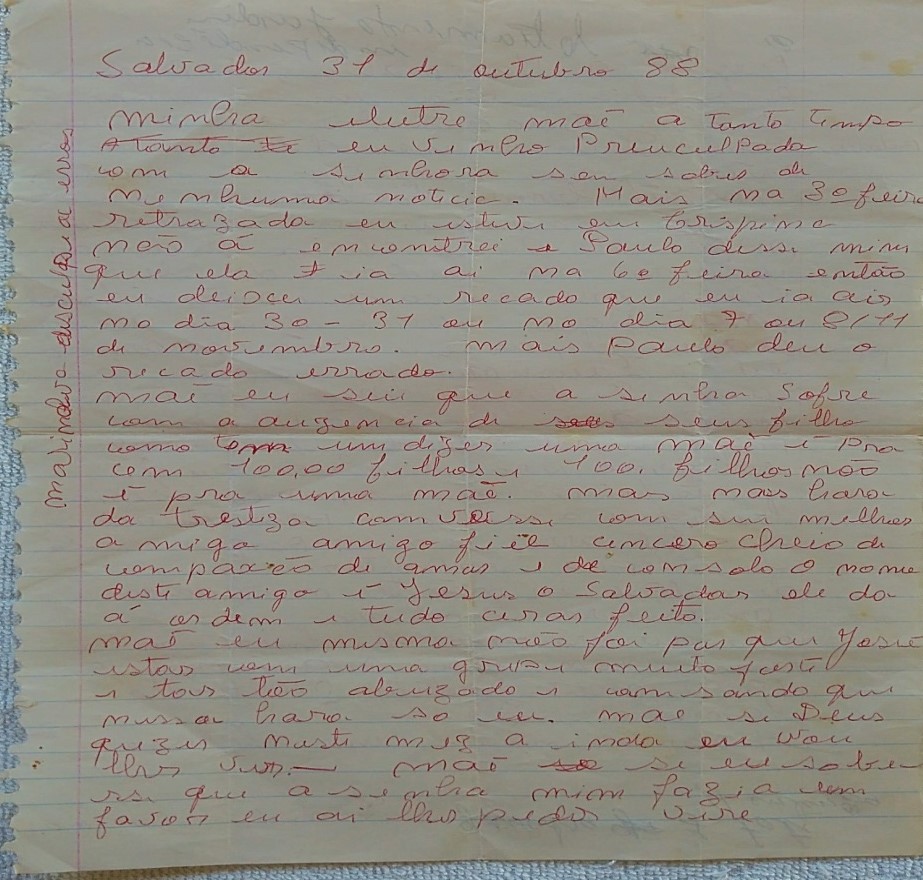 Salvador 31 de outubro 88
minha elutre maē a tanto tempo
Atanto te eu venho Preuculpada
com a senhora sem sober de
Nenhuma noticia. Mais na 3º feira
retrazada eu estive em Crispina
não á encontrei e Paulo disse mim
que ela t ia ai na 6º feira então
eu deioceu um recado que eu ia ais
no dia 30 - 31 ou no dia 7 ou 8/11
de novembro. mais Paulo deu o
recado errado.
maē eu seis que a senhra Sofre
com a augencia de seus filho
como um dizer uma maē é pra
cem 100,00 filhos e 100, filhos não
é pra uma maē. mas maes hara
da tresteza comverse com seu melhor
amigo amigo fiel cincero cheio de
compaxeõ de amar e de comsolo o nome
deste amigo é Jesus o Salvador ele da
á ordem e tudo ceras feito.
maē eu mesma não foi por que Josie
estar com uma gripe muito forte
e tos tão abuzado e comsando que
nussa hara so eu. mae se Deus
quizer neste mez a inda eu vou
lhes ver. — maē se eu sobe
rse que a senhra mim fazia um
favor eu ai lhes pedir vire
marinalva disculpi os erros